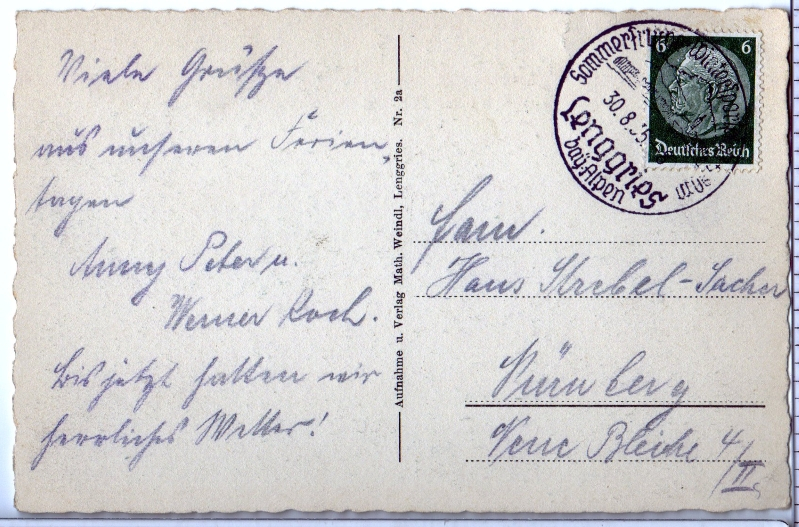 Viele Grüsze
aus unseren Ferien-
tagen
Anny Peter u.
Werner Koch.
Bis jetzt hatten wir
herrliches Wetter!
Aufnahme u. Verlag Math. Weindl, Lenggries. Nr. 2a
Sommerfrische Wintersport
30.8.35
Lenggries
bay. Alpen
6 6
Deutsches Reich
Fam.
Hans Strebel-Sacher
Nürnberg
Neue Bleiche 4/II